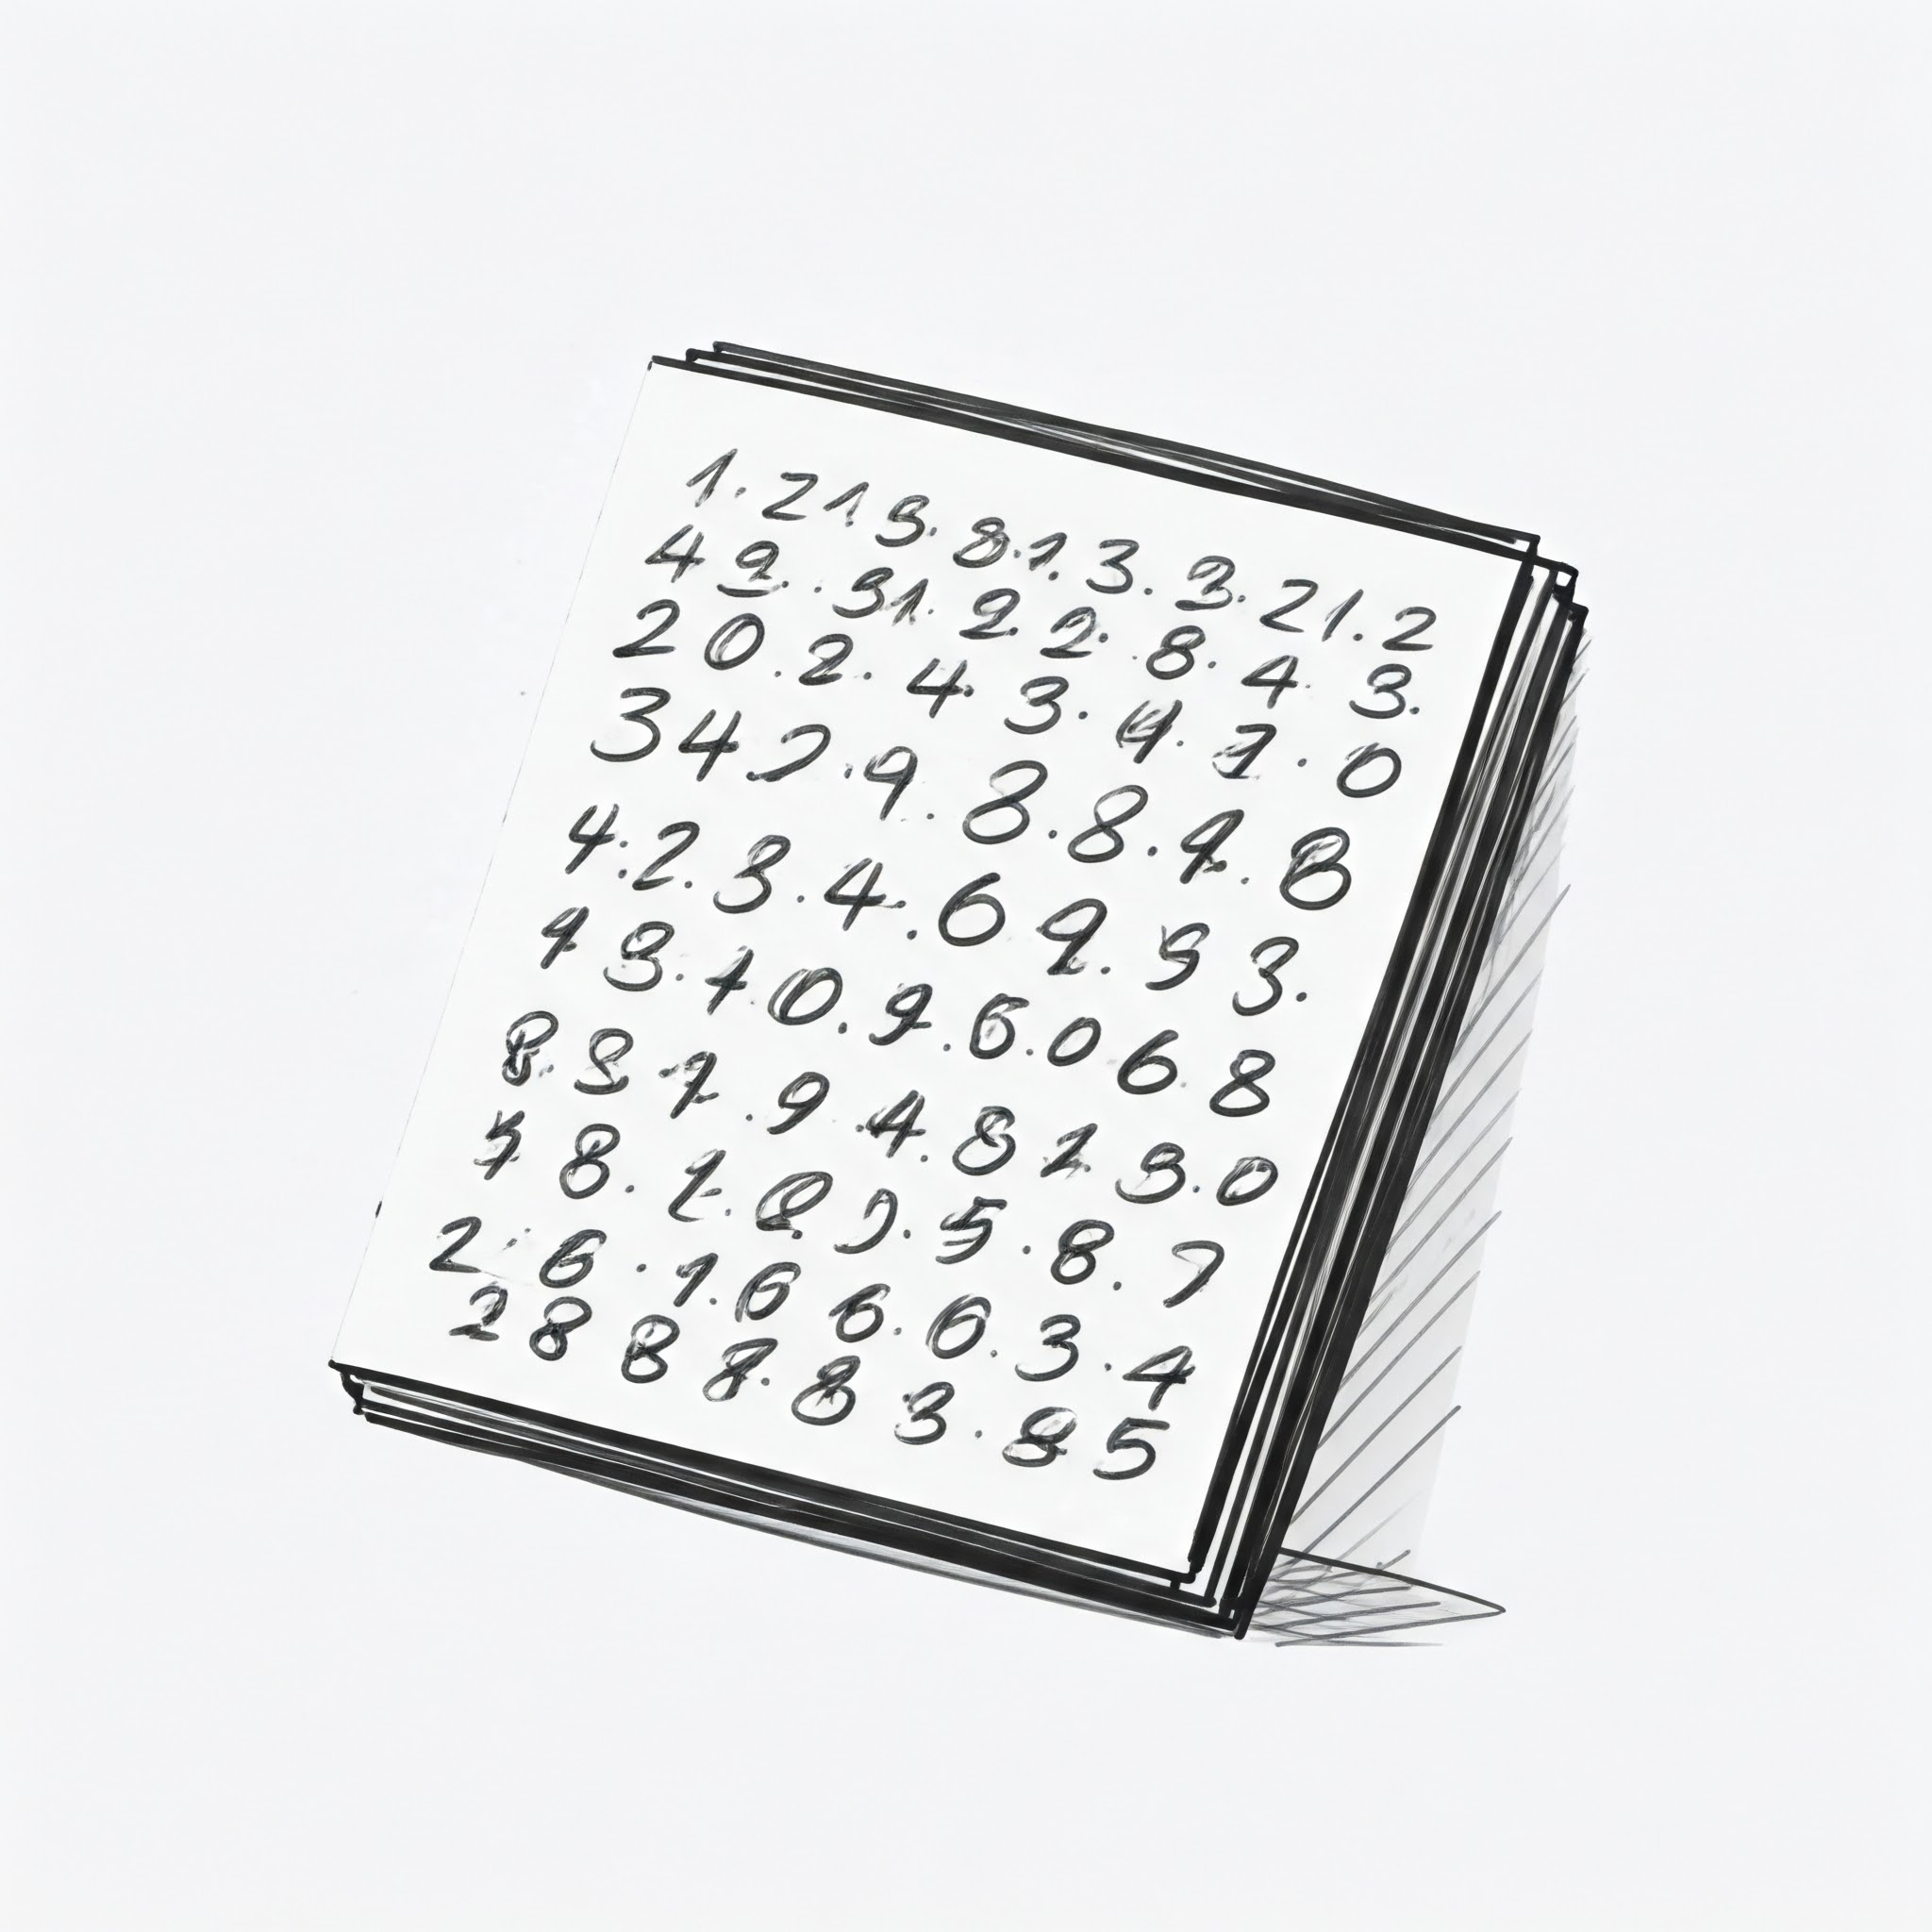 1. 21. 3. 8. 1. 3. 3. 21. 2
4 2. . 31. 2. 2. . 8. 4. 3.
2 0 . 2. 4. 3. 4. 1. 0
3 4 2 . 9. 8. 8. 9. 8
4. 2. 3. 4. 6 9. 9 3.
4 3. 1 0. 9. 6. 0 6. 8
8. 8 1 . 9 . 4. 8 1. 3. 0
8. 2. 5. 8. 7
2. 6. 1. 6 6. 6. 3. 4
2 8 8 8. 8 3. 8 5